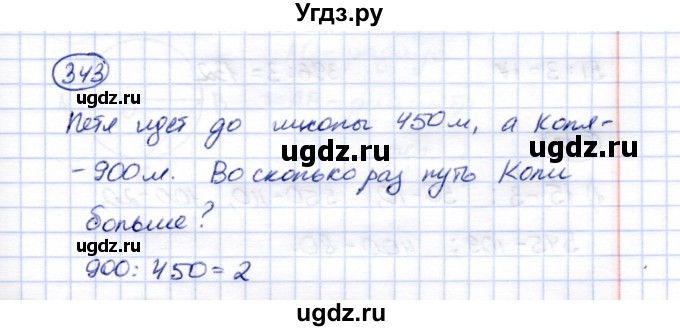 Угдз.ру
343
ugdz.ru ugdz.ru
Петя идет до школы 450 м, а Коля-
ugdz.ru
- 900 м. Во сколько раз путь Коли
больше?
ugdz.ru ugdz.ru
900 : 450 = 2
Угдз.ру